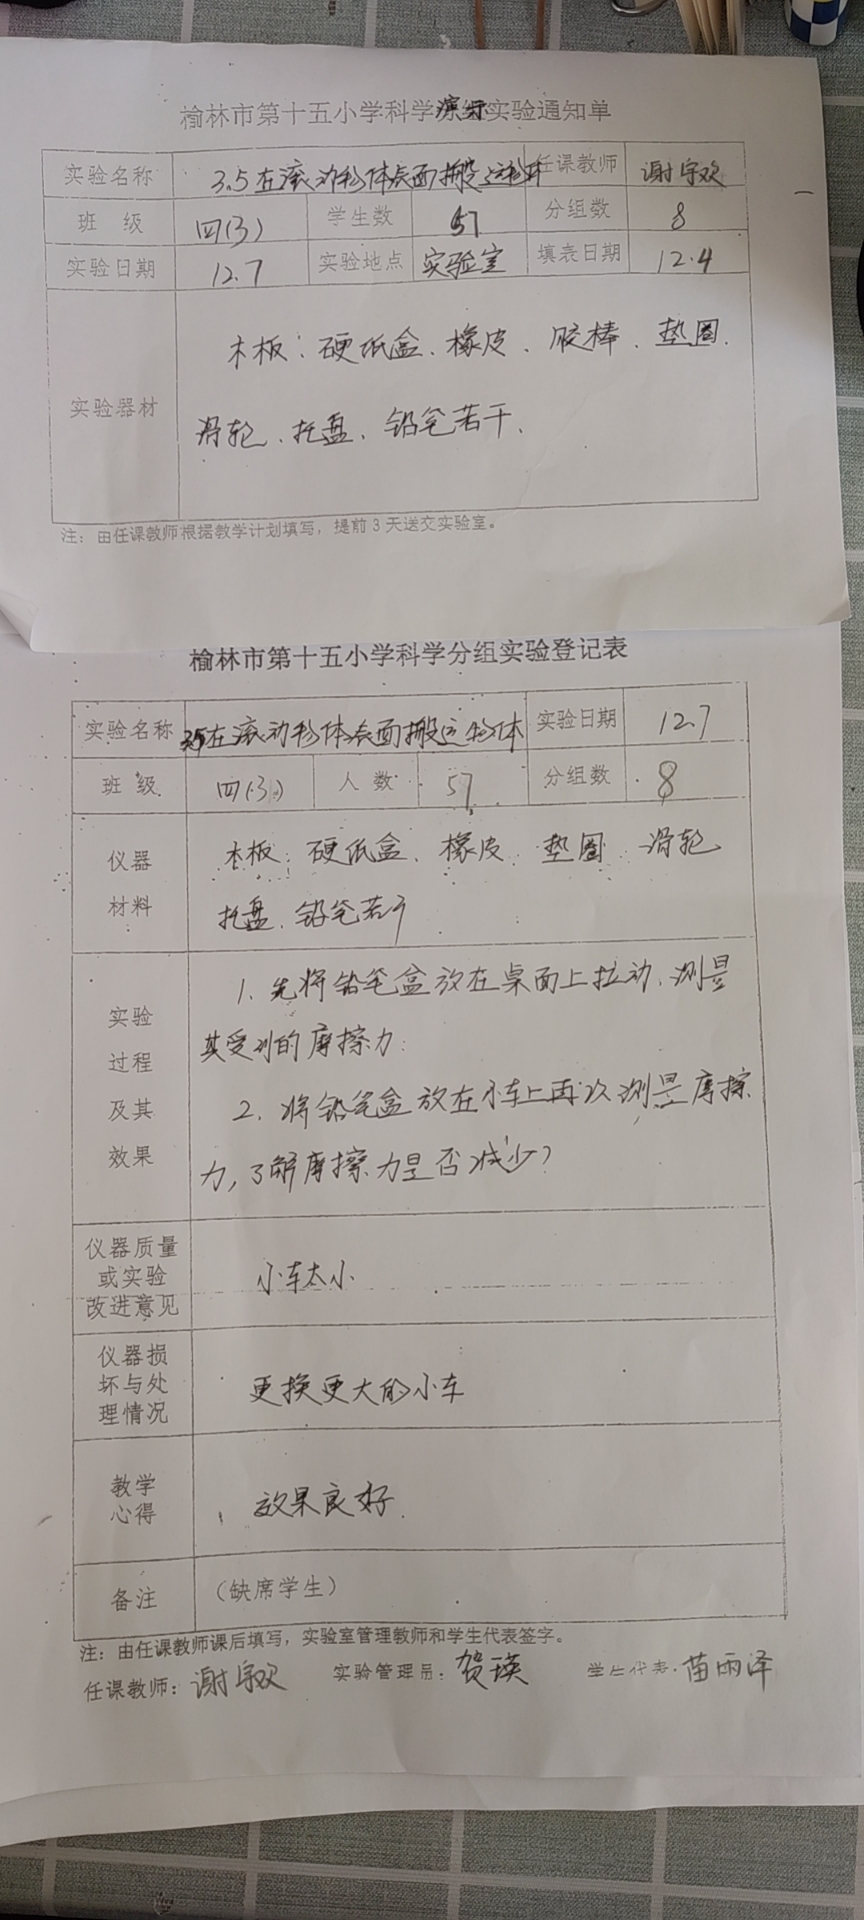 榆林市第十五小学科学演示实验通知单
实验名称 3.5在滚动物体表面搬运物体 任课教师 谢宇欢
班 级 四(3) 学生数 57 分组数 8
实验日期 12.7 实验地点 实验室 填表日期 12.4
木板、硬纸盒、橡皮、胶棒、垫圈、
实验器材
滑轮、托盘、铅笔若干、
注：由任课教师根据教学计划填写，提前3天送交实验室。
榆林市第十五小学科学分组实验登记表
实验名称 3.5在滚动物体表面搬运物体 实验日期 12.7
班 级 四(3) 人 数 57 分组数 8
仪器 木板、硬纸盒、橡皮、垫圈、滑轮
材料 托盘、铅笔若干
1、先将铅笔盒放在桌面上拉动、测量
实验
过程 其受到的摩擦力；
及其 2、将铅笔盒放在小车上再次测量摩擦
效果 力，了解摩擦力是否减少？
仪器质量
或实验 小车太小
改进意见
仪器损
坏与处 更换更大的小车
理情况
教学 效果良好
心得
备注 （缺席学生）
注：由任课教师课后填写，实验室管理教师和学生代表签字。
任课教师：谢宇欢 实验管理员：贺瑛 学生代表：苗雨泽